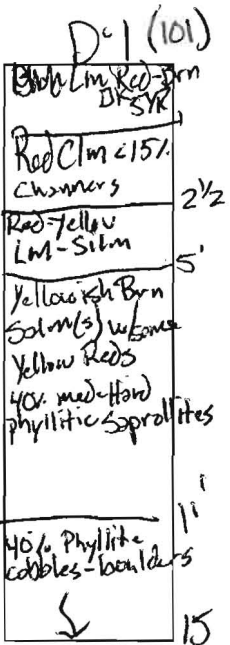 D-1 (101)
Lm Red-Brn
DK 5YR
1
Red Clm <15%
channers
2 1/2
Red-Yellow
Lm-Silm
5'
Yellowish Brn
Salm(s) w/some
Yellow Reds
40% med-Hard
phyllitic saprolites
11'
40% Phyllite
cobbles-boulders
15